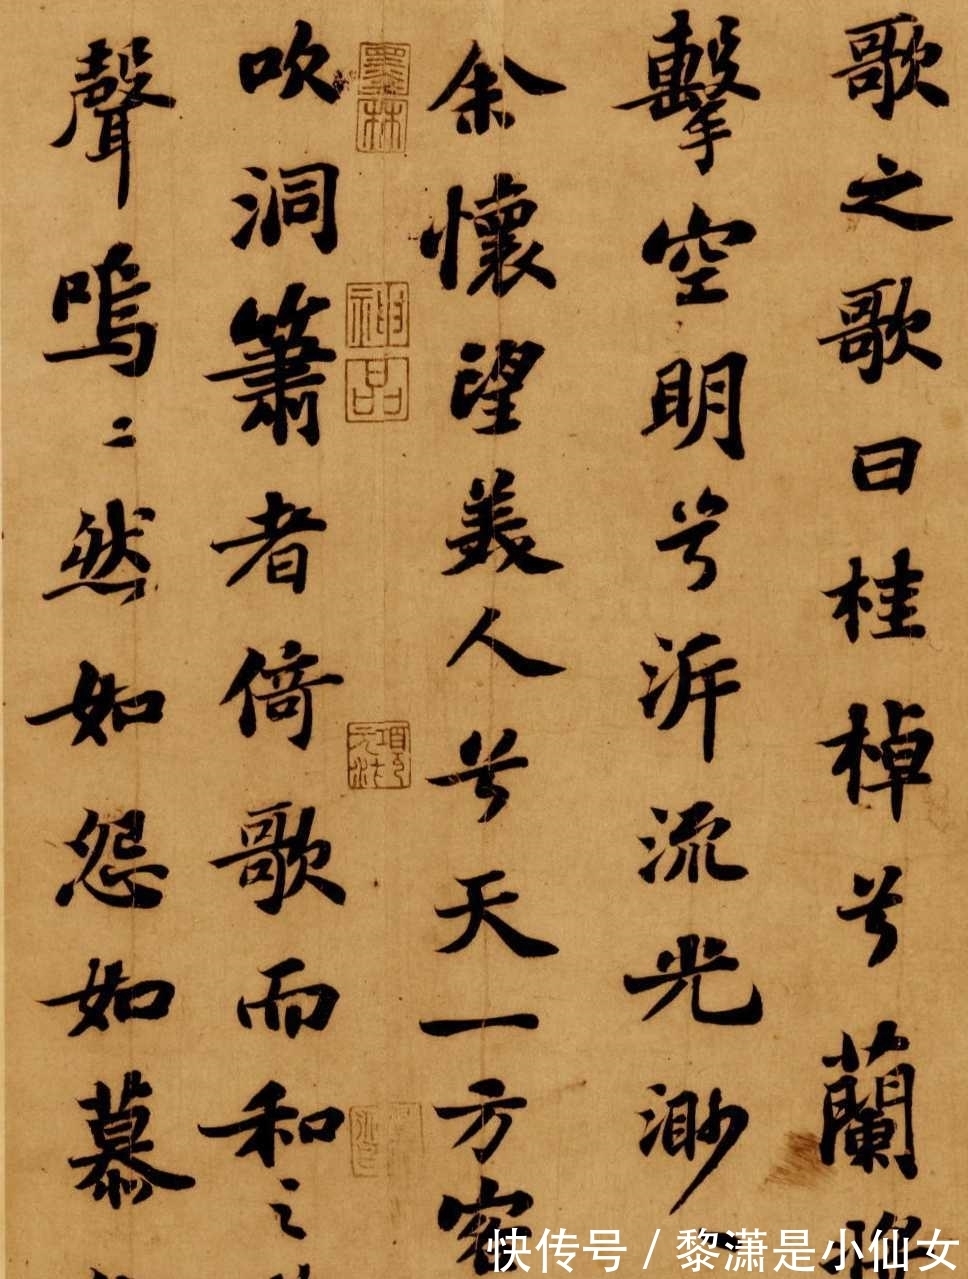 歌之歌曰桂棹兮蘭
擊空明兮泝流光渺
余懷望美人兮天一方客
吹洞簫者倚歌而和之
聲嗚〻然如怨如慕
墨林
神品
項元汴
快传号 / 黎潇是小仙女